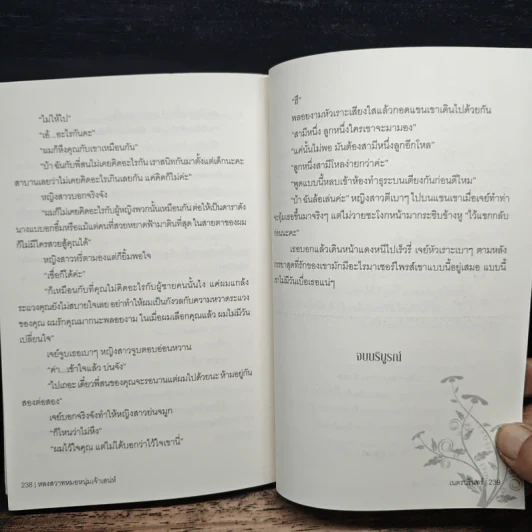 "ไม่ให้ไป"
"เอ้...อะไรกันคะ"
"ผมก็หึงคุณกับเขาเหมือนกัน"
"บ้า ฉันกับพี่สนไม่เคยคิดอะไรกัน เราสนิทกันมาตั้งแต่เด็กนะคะ
สาบานเลยว่าไม่เคยคิดอะไรเกินเลยกัน แค่คิดก็ไม่ค่ะ"
หญิงสาวบอกจริงจัง
"ผมก็ไม่เคยคิดอะไรกับผู้หญิงพวกนั้นเหมือนกัน ต่อให้เป็นดาราดัง
นางแบบอกอึ๋มหรือแม้แต่คนที่สวยหยาดฟ้ามาดินที่สุด ในสายตาของผม
ก็ไม่มีใครสวยสู้คุณได้"
หญิงสาวหรี่ตามองแต่ก็ยิ้มพอใจ
"เชื่อก็ได้ค่ะ"
"ก็เหมือนกับที่คุณไม่คิดอะไรกับผู้ชายคนนั้นไง แค่ผมแกล้ง
ระแวงคุณยังไม่สบายใจเลย อย่าทำให้ผมเป็นกังวลกับความหวาดระแวง
ของคุณ ผมรักคุณมากนะพลอยงาม ในเมื่อผมเลือกคุณแล้ว ผมไม่มีวัน
เปลี่ยนใจ"
เจย์จูบเธอเบาๆ หญิงสาวจูบตอบอ่อนหวาน
"ค่า...เข้าใจแล้ว บ่นจัง"
"ไปเถอะ เดี๋ยวพี่สนของคุณจะรอนานแต่ผมไปด้วยนะ ห้ามอยู่กัน
สองต่อสอง"
เจย์บอกจริงจังทำให้หญิงสาวย่นจมูก
"ก็ไหนว่าไม่หึง"
"ผมไว้ใจคุณ แต่ไม่ได้บอกว่าไว้ใจเขานี่"
238 | หลงสวาทหมอหนุ่มเจ้าเสน่ห์
"ฮึ"
พลอยงามหัวเราะเสียงใสแล้วกอดแขนเขาเดินไปด้วยกัน
"สามีหนึ่ง ลูกหนึ่งใครเขาจะมามอง"
"แค่นั้นไม่พอ มันต้องสามีหนึ่งลูกอีกโหล"
"ลูกหนึ่งสามีโหลง่ายกว่าค่ะ"
"พูดแบบนี้หลบเข้าห้องทำธุระบนเตียงกันก่อนดีไหม"
"บ้า ฉันล้อเล่นค่ะ" หญิงสาวตีเบาๆ ไปบนแขนเขาเมื่อเจย์ทำท่า
จะอุ้มเธอขึ้นมาจริงๆ แต่ไม่วายชะโงกหน้ามากระซิบข้างหู "ไว้แขกกลับ
ก่อนนะคะ"
เธอบอกแล้วเดินหน้าแดงหนีไปเร็วรี่ เจย์หัวเราะเบาๆ ตามหลัง
ภรรยาสุดที่รักของเขามักมีอะไรมาเซอร์ไพรส์เขาแบบนี้อยู่เสมอ แบบนี้
เขาไม่มีวันเบื่อเธอแน่ๆ
จบบริบูรณ์
| 239